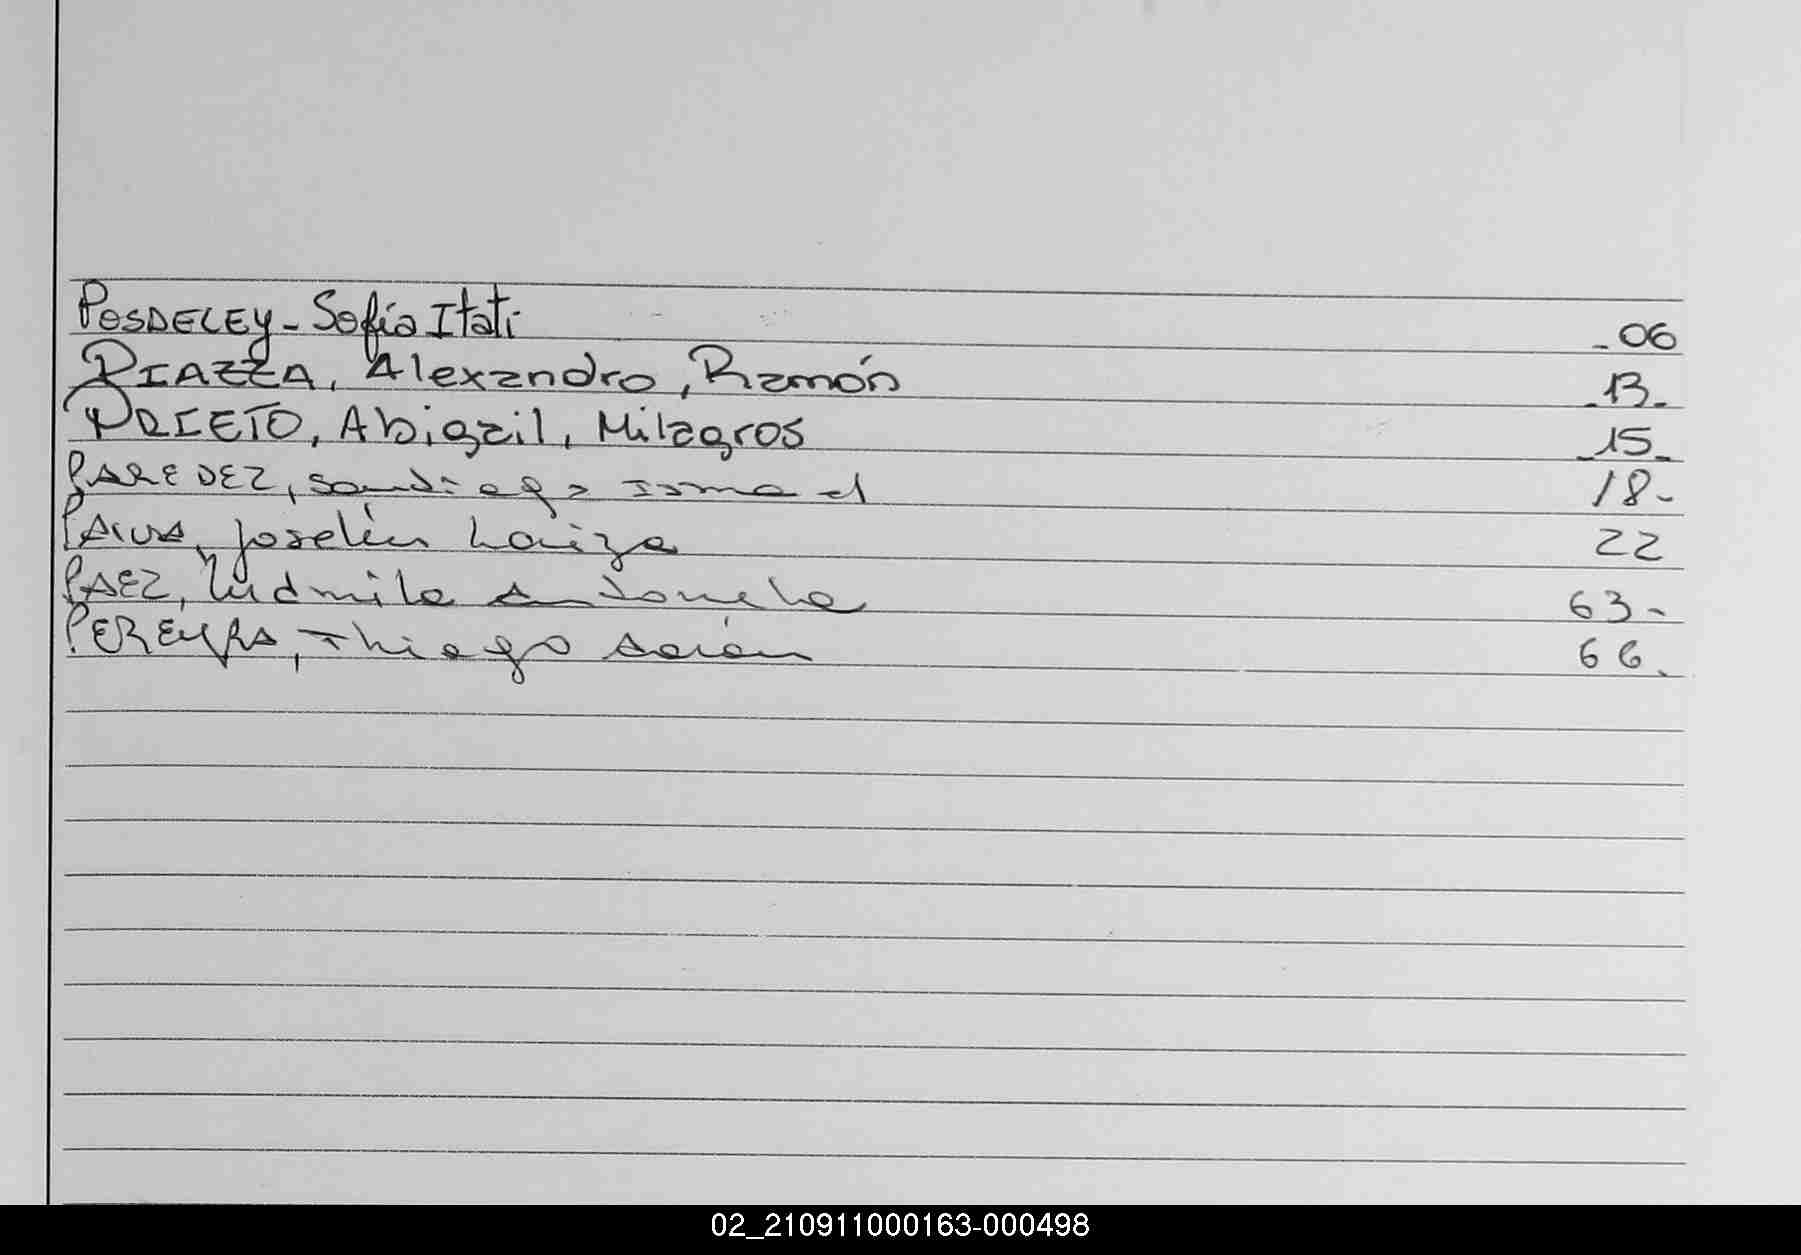 POSDELEY - Sofía Itatí - 06
PIAZZA, Alexandro, Ramón - 13 -
PRIETO, Abigail, Milagros - 15 -
PAREDEZ, Ismael 18 -
Joselín 22
PAEZ, Ludmila Antonela 63 -
PEREYRA, Thiago 66.
02_210911000163-000498